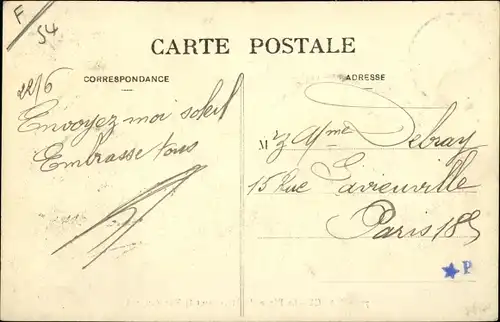 F
54
CARTE POSTALE
CORRESPONDANCE
ADRESSE
22/6
Envoyez moi soleil
Embrasse tous
Mr & Mme Debray
15 Rue Lavieuville
Paris 18e
P